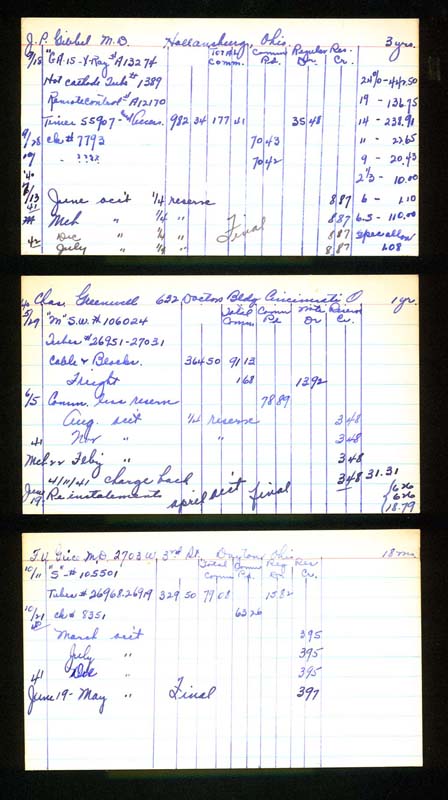 J. P. Giebel M.D. Hollansburg, Ohio. 3 yrs.
Total Comm Regular Res.
Comm. Pd. Dr. Cr.
9/18 "GA 15 - X-Ray # A13274
Hot cathode Tube # 1389 24% - 442.50
Remote Control # A12170 19 - 136.75
Timer 55907 982 34 177 41 35 48 14 - 238.91
9/28 ck # 7793 70 43 11 - 22.65
10/9 " ???? 70 42 9 - 20.43
'40 2 1/3 - 10.00
6/13 June acit 1/4 reserve 8 87 6 - 1.10
41 Mch " 1/4 " Final 8 87 6.5 - 110.00
42 Dec " 1/4 " 8 87 Spec allow
July " 1/4 " 8 87 1.08
Chas. Greenwell 632 Doctors Bldg Cincinnati O 1 yr.
Total Comm Note Reserve
Comm. Pd Dr Cr.
5/29 "M" S.W. # 106024
Tubes # 26951-27031
Cable & Blocks. 364 50 91 13
Freight 1 68 13 92
6/5 Comm. less reserve 78 89
Aug. acit 1/4 reserve 3 48
41 Nov " " 3 48
Mch 22 Feby " 3 48
4/11/41 Charge back 3 48 31.31
June 19. Reinstatements April acit final 6 26
6 26
18.79
F. Y. Gric M.D. 2703 W. 3rd St. Dayton, Ohio 18 mo
Total Comm Reg Res
Comm Pd. Dr. Cr.
10/11 "S" - # 105501
Tubes # 26968-26919 329 50 79 08 15 82
10/21 ck # 8351 63 26
40 March acit 3 95
July " 3 95
41 Dec " 3 95
June 19 - May " Final 3 97